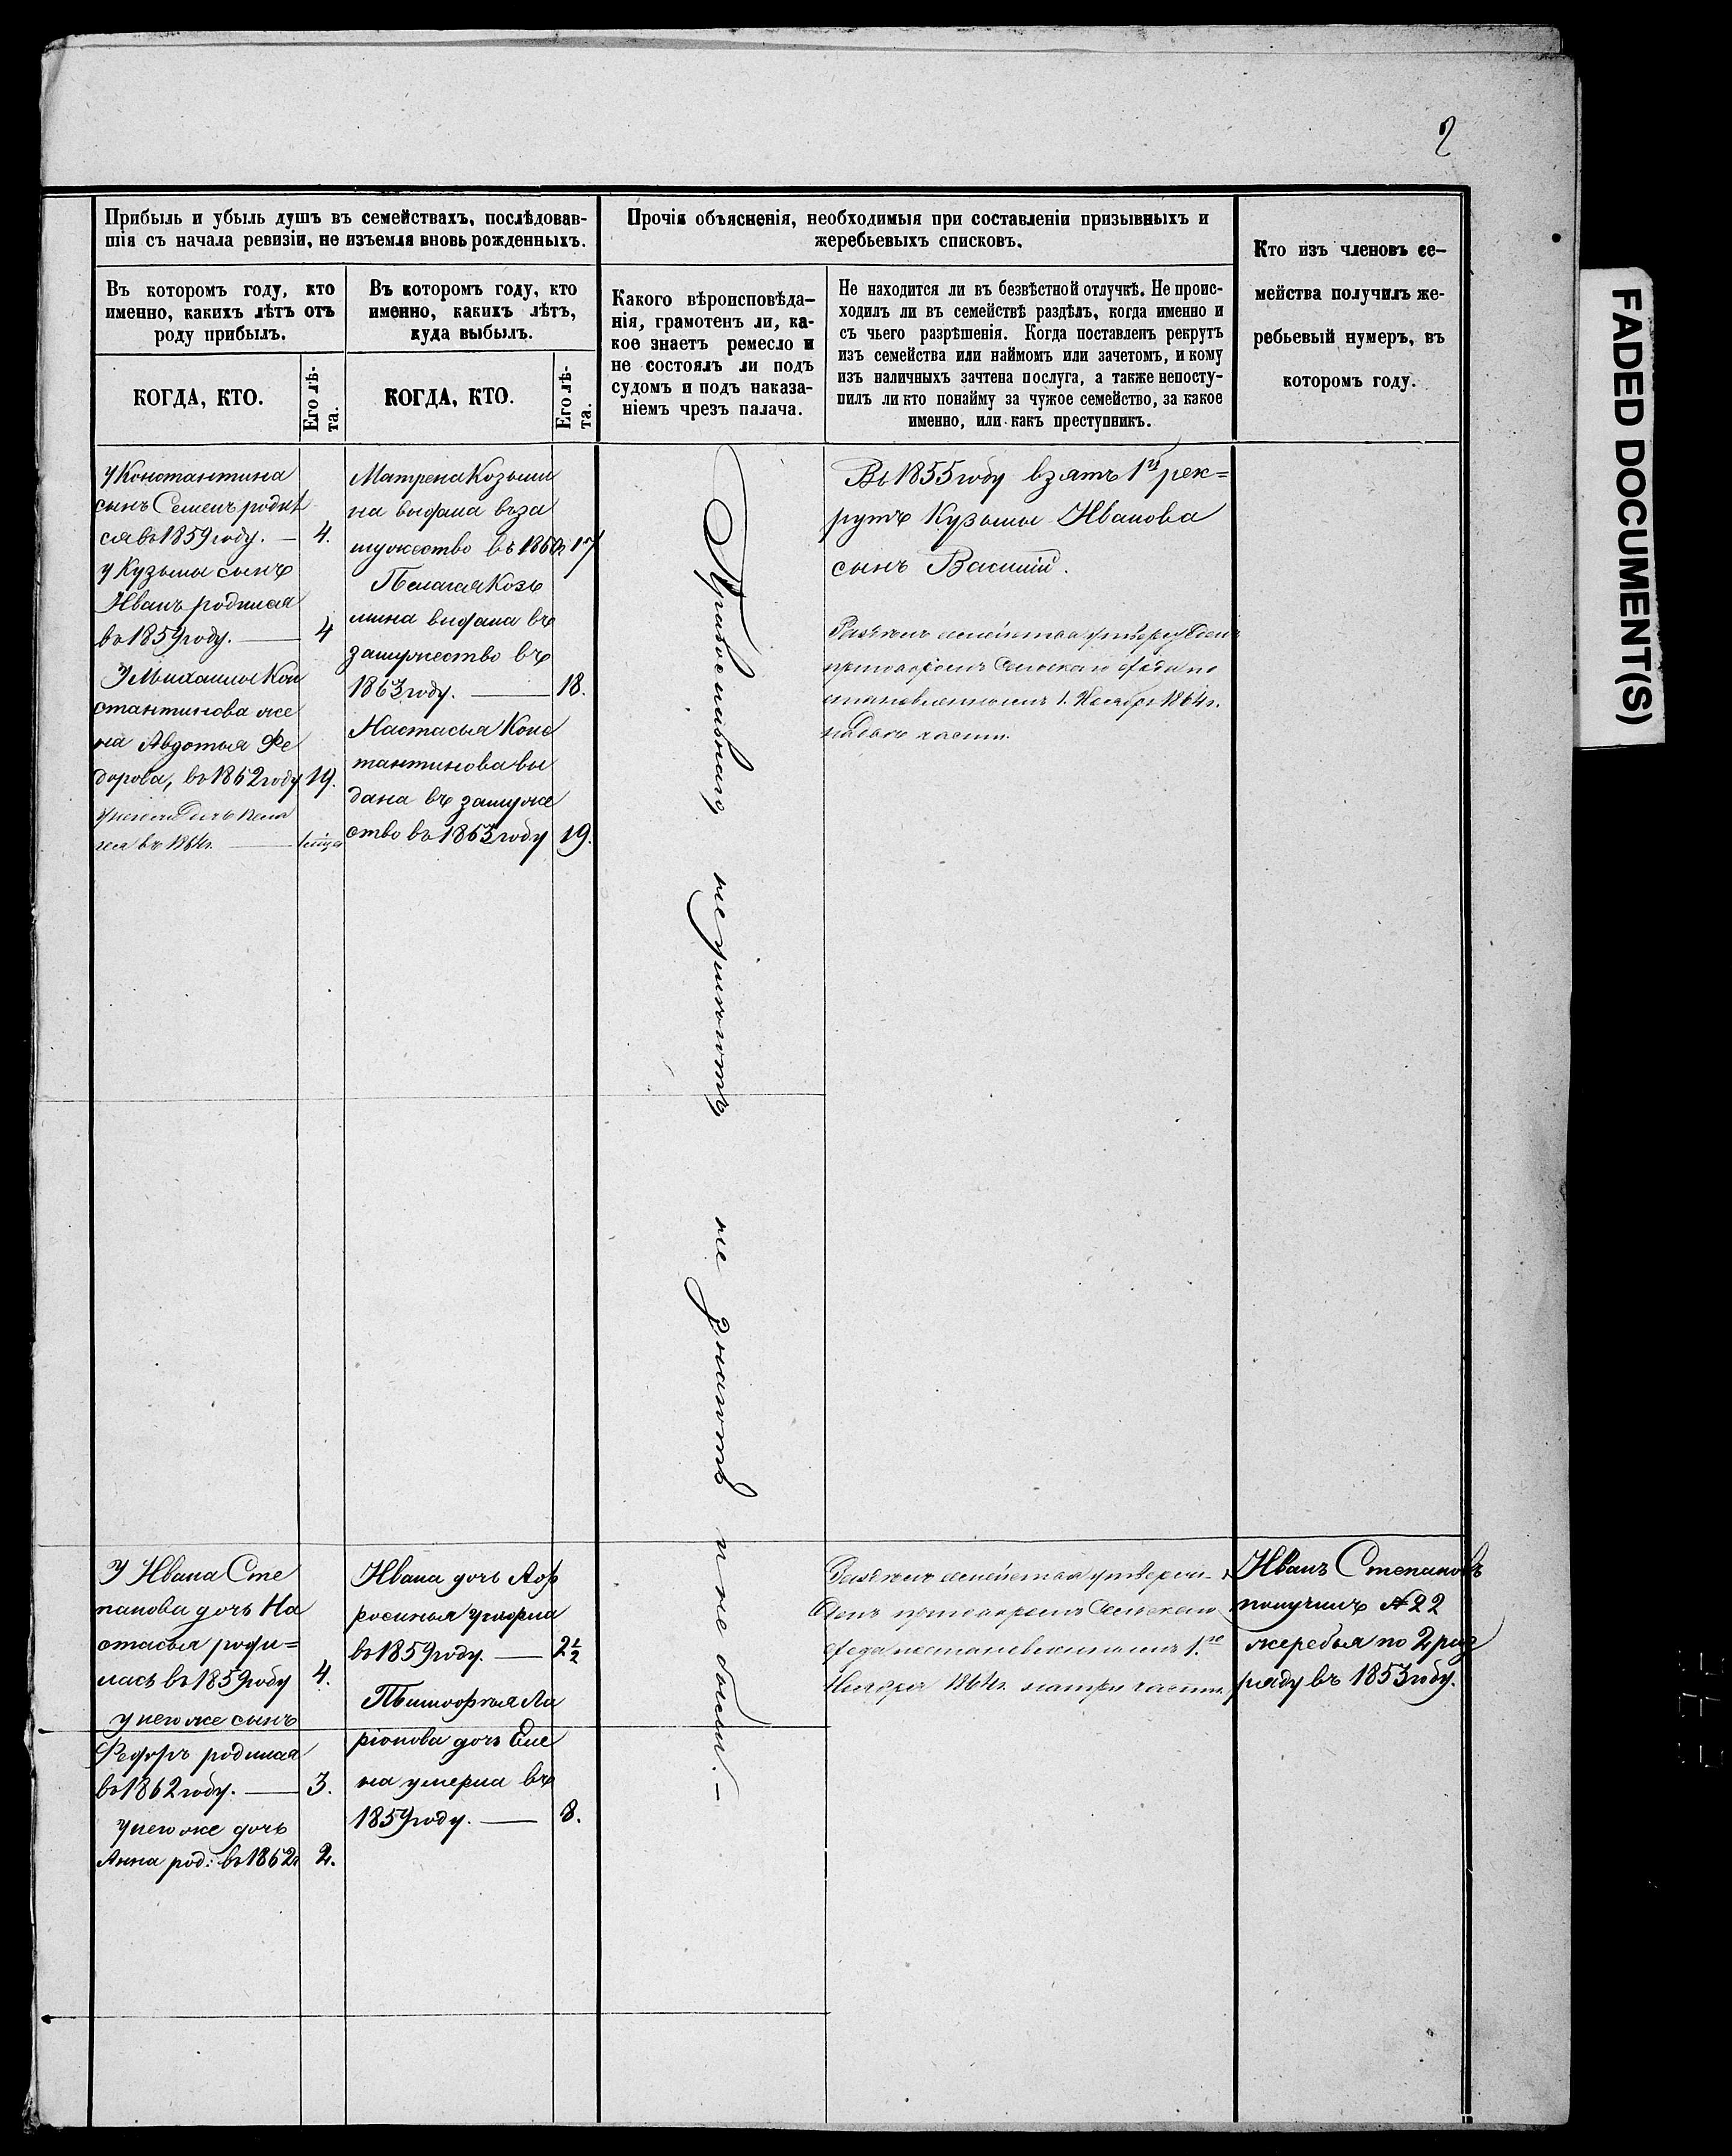 2
Прибыль и убыль душъ въ семействахъ, послѣдовав-
шія съ начала ревизіи, не изъемля вновь рожденныхъ.
Прочія объясненія, необходимыя при составленіи призывныхъ и
жеребьевыхъ списковъ.
Кто изъ членовъ се-
мейства получилъ же-
ребьевый нумеръ, въ
которомъ году.
Въ которомъ году, кто
именно, какихъ лѣтъ отъ
роду прибылъ.
Въ которомъ году, кто
именно, какихъ лѣтъ,
куда выбылъ.
Какого вѣроисповѣда-
нія, грамотенъ ли, ка-
кое знаетъ ремесло и
не состоялъ ли подъ
судомъ и подъ наказа-
ніемъ чрезъ палача.
Не находится ли въ безвѣстной отлучкѣ. Не проис-
ходилъ ли въ семействѣ раздѣлъ, когда именно и
съ чьего разрѣшенія. Когда поставленъ рекрутъ
изъ семейства или наймомъ или зачетомъ, и кому
изъ наличныхъ зачтена послуга, а также непосту-
пилъ ли кто понайму за чужое семейство, за какое
именно, или какъ преступникъ.
КОГДА, КТО.
Его лѣ-
та.
КОГДА, КТО.
Его лѣ-
та.
у Константина
сынъ Семенъ родил
ся въ 1859 году. — 4.
у Кузьмы сынъ
Иванъ родился
въ 1859 году. — 4
У Михаилы Кон
стантинова же
на Авдотья Фе
дорова, въ 1862 году 19.
у него дочь Пела
гея въ 1864г. —
Матрена Козьми
на выдана въ за
мужество въ 1860г 17
Пелагея Козь
мина выдана въ
замужество въ
1863 году. — 18.
Настасья Конс
тантинова вы
дана въ замуже
ство въ 1863 году 19.
Православнаго неграмотъ не знаютъ и не были. —
Въ 1855 году взятъ 1й рек=
рутъ Кузьмы Иванова
сынъ Василій.
Раздѣлъ семейства утвержденъ
приговоромъ Сельскаго схода по
становленнымъ 1. Ноября 1864г.
на двѣ части.
У Ивана Сте
панова дочь На
стасья роди=
лась въ 1859 году 4.
у него же сынъ
Федоръ родился
въ 1862 году. — 3.
у него же дочь
Анна род: въ 1862г 2.
Ивана дочь
умерла
въ 1859 году. — 2½
Ла
ріонова дочь Еле
на умерла въ
1859 году. — 8.
Раздѣлъ семейства утверж-
денъ приговоромъ Сельскаго
схода постановленнымъ 1.го
Ноября 1864г. на три части.
Иванъ Степановъ
получилъ № 22
жеребья по 2 раз
ряду въ 1853 году.
FADED DOCUMENT(S)